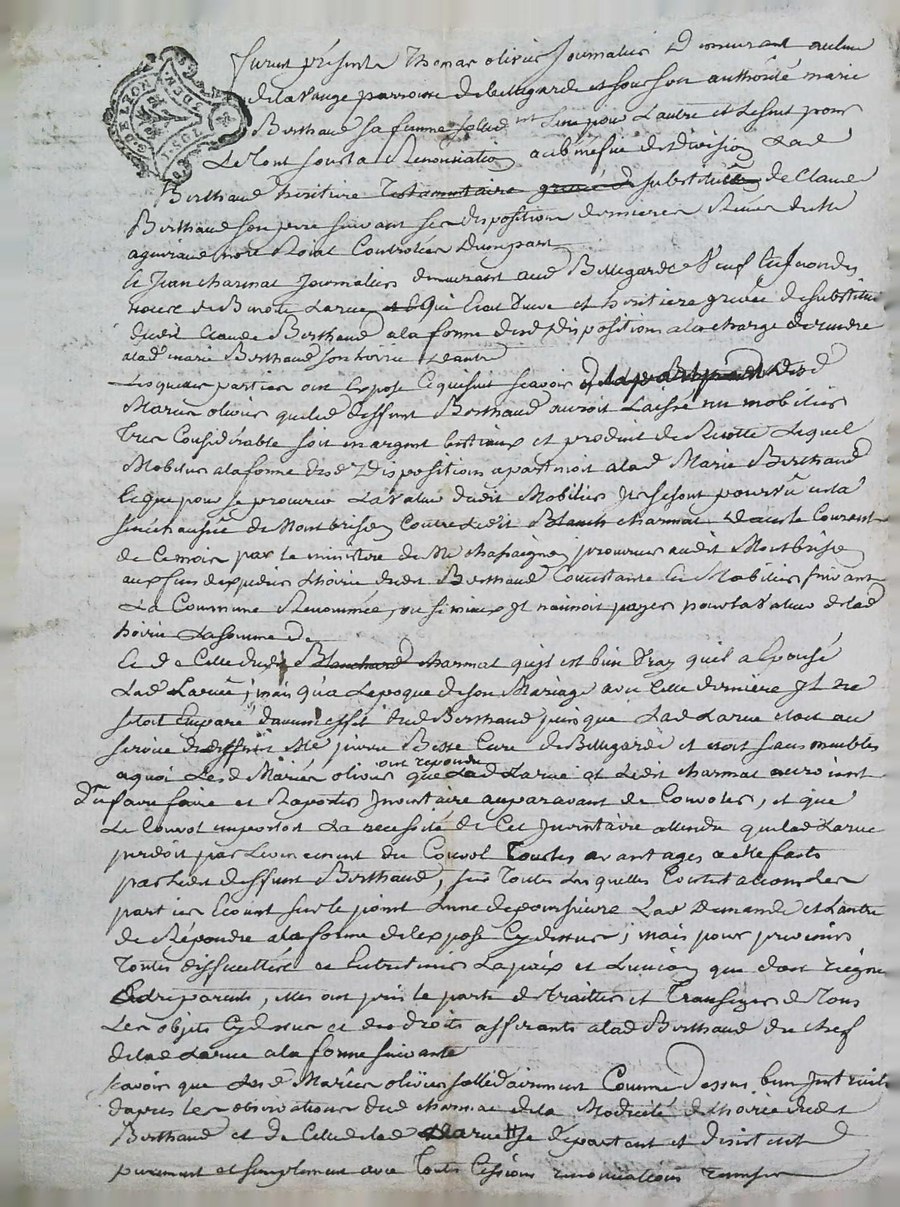 furent présents Thomas olivier Journalier Demeurant au lieu
de la Vauge parroisse de bellegarde et sous son authorité marie
Berthaud sa femme sollid.nt l'une pour L'autre et Le seul pour
Le Tout sous la Renonsiation au bénéfice de Division Lad.
Berthaud heritiere Testamentaire grevée de substitution de Claude
Berthaud son pere suivant ses dispositions dernieres Reçues de Me
notre Roial Controlées D'une part
Et Jean charmat Journalier demeurant aud. Bellegarde Veuf en secondes
noces de Benoite Larue Qui Etoit Veuve et heritiere grevée de substitution
dudit Claude Berthaud a la forme desd. Dispositions a la charge de rendre
a lad. marie Berthaud son hoirie d'autre
Lesquelles parties ont Exposé Ce qui suit scavoir Lesd.
Mariés olivier que led. deffunt Berthaud auroit Laissé un mobilier
Tres Considérable soit en argent bestiaux et produit de Recolte Lequel
Mobilier a la forme desd. Dispositions apartenoit a lad. Marie Berthaud
Et que pour se procurer La Valeur dudit Mobilier Ils se sont pourvû en la
sénéchaussée de Montbrison Contre Ledit charmat dans le Courant
de Ce mois par le ministere de Me chassaigne procureur audit Montbrison
aux fins d'expedier L'hoirie dudit Berthaud Consistante En Mobilier suivant
La Commune Renommée, ou si mieux Il n'aimoit payer pour la Valeur de lad.
hoirie La somme de
Et de Celle dudit Blanchard charmat qu'il est bien Vray qu'il a Epousé
Lad. Larue; mais qu'a L'epoque de son Mariage avec Cette derniere Il ne
s'etoit Emparé d'aucun effet dud. Berthaud puis que Lad. Larue etoit au
service de deffunt Me pierre Besse Curé de Bellegarde et etoit sans meubles
a quoi Lesd. Mariés olivier ont repondu que Lad. Larue et Ledit charmat auroient
dû faire faire et Raporter Inventaire auparavant de Convoler, et que
Le Convol importoit La necessité de Cet Inventaire attendu que lad. Larue
perdoit par L'evenement du Convol Toutes avantages a elle faits
par Ledit deffunt Berthaud, sur Toutes Lesquelles Contestations Les
parties Etoient sur le point L'une de poursuivre Lad. Demande et L'autre
de Répondre a la forme de l'exposé Cy dessus; mais pour prevenir
Toutes difficultés et Entretenir La paix et L'union que doit régner
Entre parents, elles ont pris le parti de Traitter et Transiger de Tous
Les objets Cy dessus et des droits afferants a lad. Berthaud du chef
de lad. Larue a la forme suivante
scavoir que Lesd. Mariés olivier sollidairement Comme Dessus bien Instruits
d'apres les observations dud. charmat de la Modicité de L'hoirie dudit
Berthaud et de Celle de lad. Larue se départent et desistent
purement et simplement avec Toutes Cessions renonciations remises